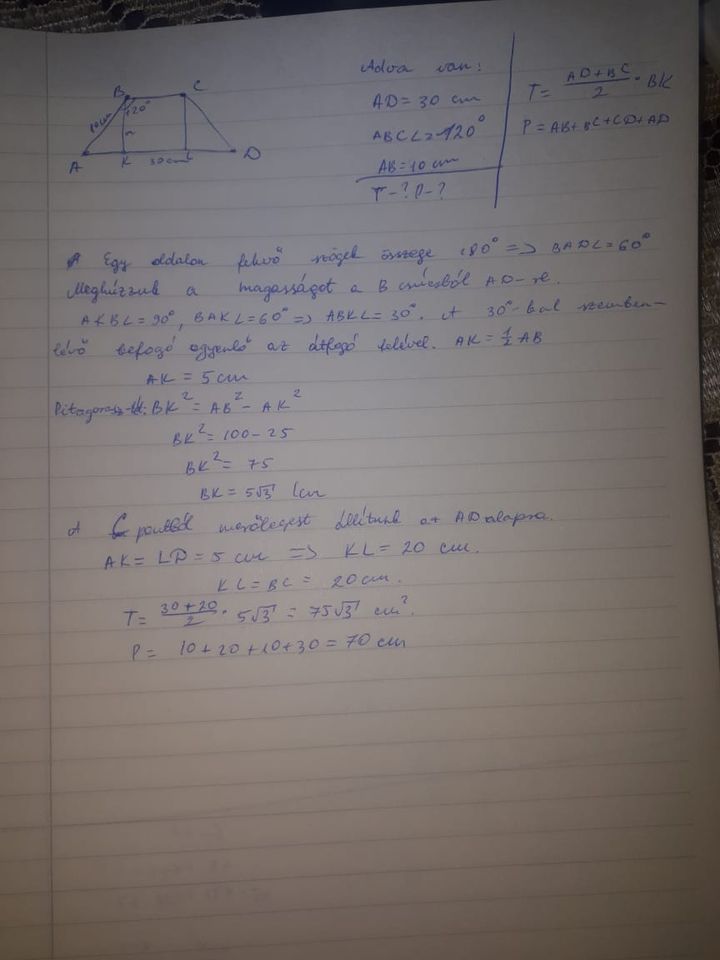 B
C
120°
10 cm
A
K
30 cm
L
D
Adva van:
AD = 30 cm
ABC∠ = 120°
AB = 10 cm
T-? P-?
T = \frac{AD+BC}{2} · BK
P = AB+BC+CD+AD
Egy oldalon fekvő szögek összege 180° => BAD∠ = 60°
Meghúzzuk a magasságot a B csúcsból AD-re.
AKB∠ = 90°, BAK∠ = 60° => ABK∠ = 30°. A 30°-kal szemben-
lévő befogó egyenlő az átfogó felével. AK = \frac{1}{2} AB
AK = 5 cm
Pitagorasz-tét: BK² = AB² - AK²
BK² = 100 - 25
BK² = 75
BK = 5√3 cm
A C pontból merőlegest állítunk az AD alapra.
AK = LD = 5 cm => KL = 20 cm.
KL = BC = 20 cm.
T = \frac{30+20}{2} · 5√3 = 75√3 cm².
P = 10+20+10+30 = 70 cm